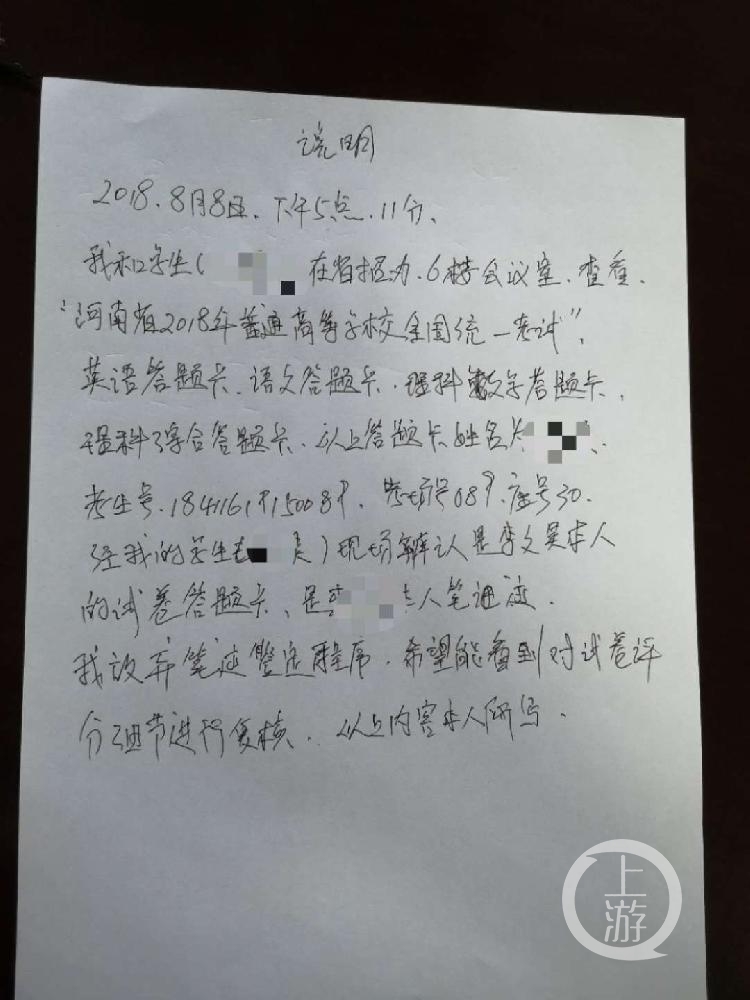 说明
2018.8月8日.下午5点.11分.
我和学生(
在省招办.6楼会议室.查看.
"河南省2018年普通高等学校全国统一考试",
英语答题卡.语文答题卡.理科数学答题卡.
理科综合答题卡.以上答题卡姓名为
考生号.18411619150089.考场号089.座号30.
经我的学生 )现场辨认是李文昊本人
的试卷答题卡、是李 本人笔迹.
我放弃笔迹鉴定程序.希望能看到对试卷评
分细节进行复核.以上内容本人所写.
上游